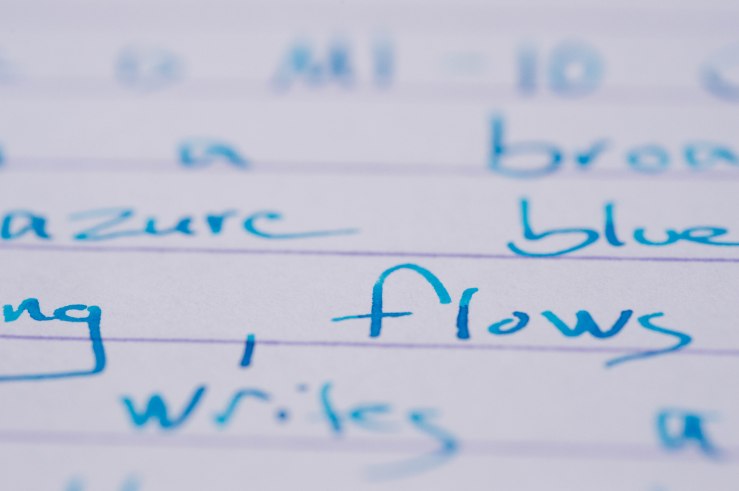 MI - 10
a broa
azure blue
ng, flows
writes a